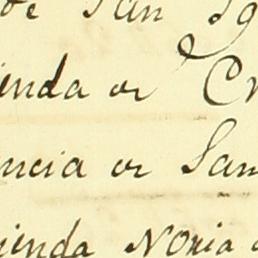 de San Ig
ienda de Cr
encia de San
ienda Noria d